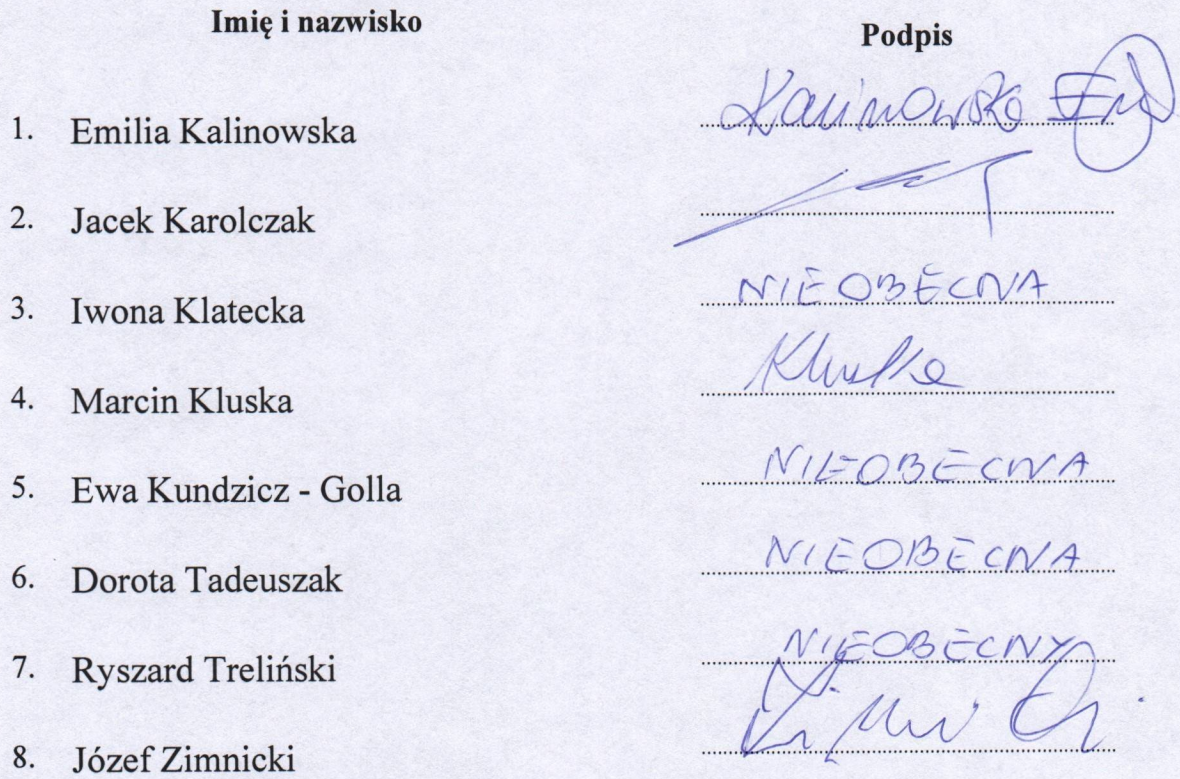 Imię i nazwisko Podpis
1. Emilia Kalinowska Kalinowska
2. Jacek Karolczak
3. Iwona Klatecka NIEOBECNA
4. Marcin Kluska Kluska
5. Ewa Kundzicz - Golla NIEOBECNA
6. Dorota Tadeuszak NIEOBECNA
7. Ryszard Treliński NIEOBECNY
8. Józef Zimnicki